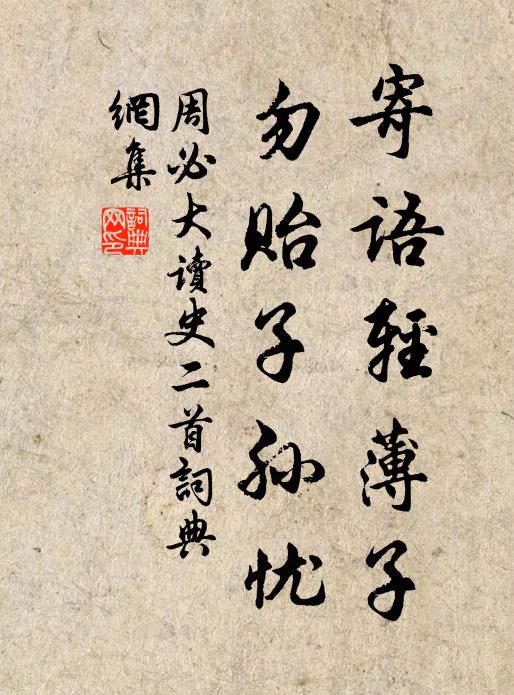 寄语輕薄子
勿贻子孙忧
周必大讀史二首詞典
網集
詞典網印